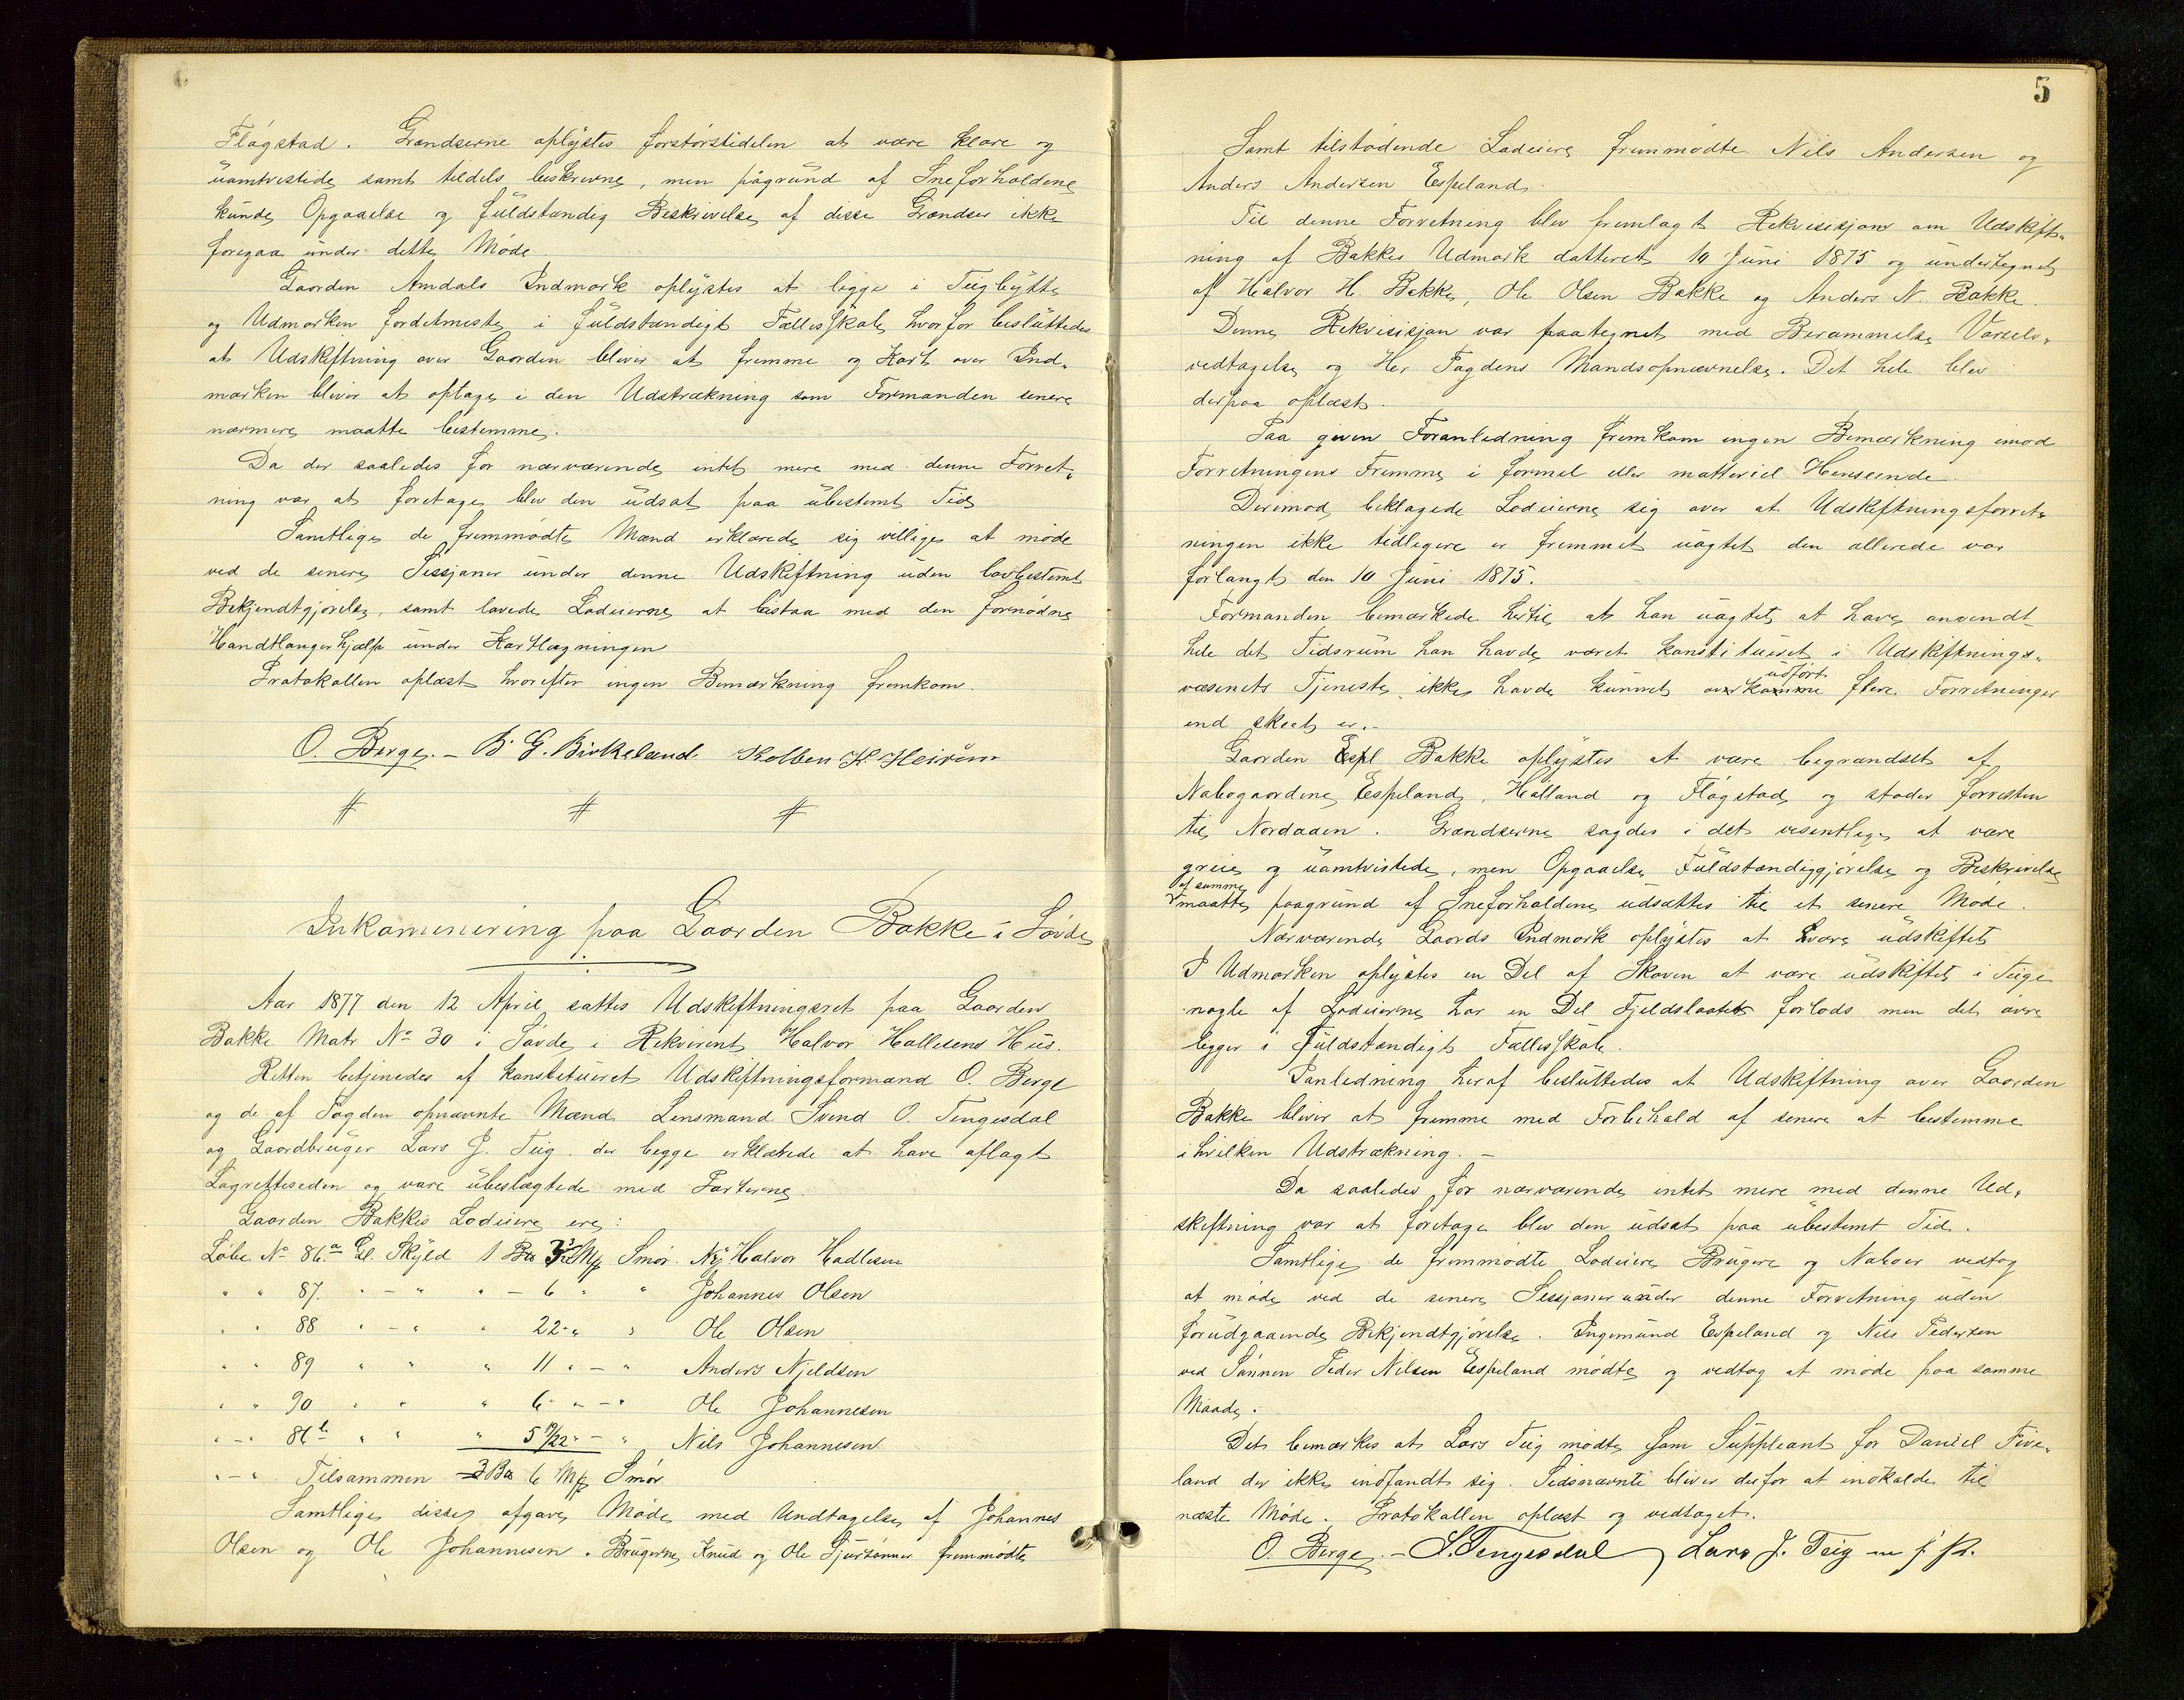 Flógstad. Grændserne oplystes forstörstedelen at være klare og
uomtvistede samt tildels beskrevne, men pågrund af Sneforholdene
kunde Opgaaelse og fuldstændig Beskrivelse af disse Grændser ikke
foregaa under dette Möde.
Gaarden Amdals Indmark oplystes at ligge i Teigbytte
og Udmarken fordetmeste i fuldstændigt Fællesskab, hvorfor besluttedes
at Udskiftning over Gaarden bliver at fremme og Kart over Ind-
marken bliver at optage i den Udstrækning som Formanden senere
nærmere maatte bestemme.
Da der saaledes for nærværende intet mere med denne Forret-
ning var at foretage blev den udsat paa ubestemt Tid
Samtlige de fremmödte Mænd erklærede sig villige at möde
ved de senere Sessjoner under denne Udskiftning uden lovbestemt
Bekjendtgjörelse, samt lovede Lodeierne at bistaa med den fornödne
Handtlangerhjælp under Kartlægningen
Protokollen oplæst hvorefter ingen Bemærkning fremkom.
O. Berge. - B. G. Birkeland Kolben H. Heirem
# # #
Inkaminering paa Gaarden Bakke i Sövde
Aar 1877 den 12 April sattes Udskiftningsret paa Gaarden
Bakke Matr No 30 i Sövde i Rekvirent Halvor Hallesens Hus.
Retten betjenedes af konstitueret Udskiftningsformand O. Berge
og de af Fogden opnævnte Mænd Lensmand Svend O. Tengesdal
og Gaardbruger Lars J. Teig. der begge erklærede at have aflagt
Lagretteseden og være ubeslægtede med Parterne.
Gaarden Bakkes Lodeiere ere:
Löbe No 86a Gl. Skyld 1 Bu Mk Smör. Halvor Hadlesen
" " 87. " - " " - 6 " " Johannes Olsen
" " 88 " - " " 22 - " " Ole Olsen
" " 89 " " " 11 " - " Anders Njeldsen
" " 90 " " " 6 - " - " Ole Johannesen
" - " 86b " " " 5 19/22 " - " Nils Johannesen
" - " Tilsammen 3 Bu 6 Mk Smör
Samtlige disse afgave Möde med Undtagelse af Johannes
Olsen og Ole Johannesen. Brugerne Knud og Ole Sjursönner fremmödte
5
Samt tilstödende Lodeiere fremmödte Nils Andersen og
Anders Andersen Espeland.
Til denne Forretning blev fremlagt Rekvisisjon om Udskift-
ning af Bakkes Udmark datteret 10 Juni 1875 og undertegnet
af Halvor H. Bakke, Ole Olsen Bakke og Anders N. Bakke.
Denne Rekvisisjon var paategnet med Berammelse Varsels-
vedtagelse og Her Fogdens Mandsopnævnelse. Det hele blev
derpaa oplæst.
Paa given Foranledning fremkom ingen Bemærkning imod
Forretningens Fremme i formel eller matteriel Henseende.
Derimod beklagede Lodeierne sig over at Udskiftningsforret-
ningen ikke tidligere er fremmet uagtet den allerede var
forlangt den 10 Juni 1875.
Formanden bemærkede hertil at han uagtet at have anvendt
hele det Tidsrum han havde været konstitueret i Udskiftnings-
væsenets Tjeneste ikke havde kunnet overkomme udfört flere Forretninger
end skeet er.-
Gaarden Espl Bakke oplystes at være begrændset af
Nabogaardene Espeland, Hålland og Flógstad og stöder forresten
til Nordaaen. Grændserne sagdes i det vesentlige at være
greie og uomtvistede, men Opgaaelse Fuldstændiggjörelse og Beskrivelse
af samme maatte paagrund af Sneforholdene udsættes til et senere Möde.
Nærværende Gaards Indmark oplystes at være udskiftet
I Udmarken oplystes en Del af Skoven at være udskiftet i Teige
nogle af Lodeierne har en Del Fjeldslaatter forlods men det övre
ligger i Fuldstændigt Fællesskab.
I anledning heraf besluttedes at Udskiftning over Gaarden
Bakke bliver at fremme med Forbehold af senere at bestemme
i hvilken Udstrækning. -
Da saaledes for nærværende intet mere med denne Ud-
skiftning var at foretage blev den udsat paa ubestemt Tid.
Samtlige de fremmödte Lodeiere Brugere og Naboer vedtog
at möde ved de senere Sessjoner under denne Forretning uden
forudgaaende Bekjendtgjörelse. Ingemund Espeland og Nils Pedersen
ved Sönnen Peder Nilsen Espeland mödte og vedtog at möde paa samme
Maade.
Det bemærkes at Lars Teig mödte som Suppleant for Daniel Five-
land der ikke indfandt sig. Sidsnævnte bliver derfor at indkalde til
næste Möde. Protokollen oplæst og vedtaget.
O. Berge. - S. Tengesdal Lars J. Teig m f P.